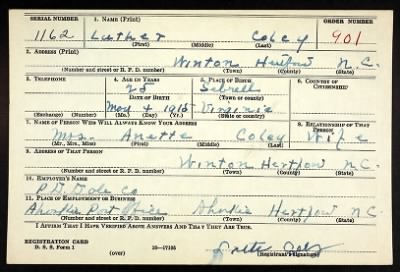 SERIAL NUMBER 1. NAME (Print) ORDER NUMBER
1162 Luther Coley 901
(First) (Middle) (Last)
2. ADDRESS (Print)
Winton Hertford N.C.
(Number and street or R. F. D. number) (Town) (County) (State)
3. TELEPHONE 4. AGE IN YEARS 5. PLACE OF BIRTH 6. COUNTRY OF CITIZENSHIP
25 Sebrell
DATE OF BIRTH (Town or county)
1915 Virginia
(Exchange) (Number) (Mo.) (Day) (Yr.) (State or country)
7. NAME OF PERSON WHO WILL ALWAYS KNOW YOUR ADDRESS 8. RELATIONSHIP OF THAT PERSON
Mrs. Anette Coley Wife
(Mr., Mrs., Miss) (First) (Middle) (Last)
9. ADDRESS OF THAT PERSON
Winton Hertford N.C.
(Number and street or R. F. D. number) (Town) (County) (State)
10. EMPLOYER'S NAME
Co
11. PLACE OF EMPLOYMENT OR BUSINESS
Ahoskie Post Office Ahoskie Hertford N.C.
(Number and street or R. F. D. number) (Town) (County) (State)
I AFFIRM THAT I HAVE VERIFIED ABOVE ANSWERS AND THAT THEY ARE TRUE.
REGISTRATION CARD
D. S. S. Form 1 16—17105
(over) (Registrant's signature)